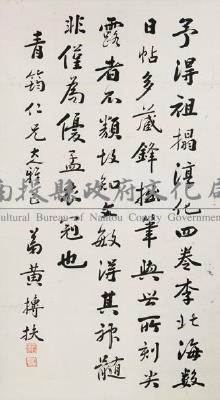 予得祖搨淳化四卷李北海數
日帖多藏鋒拙筆與世所刻尖
露者不類故知文敏得其神髓
非僅為優孟衣冠也
青筠仁兄大雅正
弟黃摶扶
南投縣政府文化局
Cultural Bureau of Nantou County Government